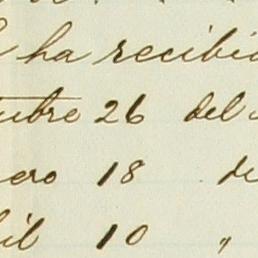 ha recibid
tubre 26 del
nero 18 de
bil 10 "